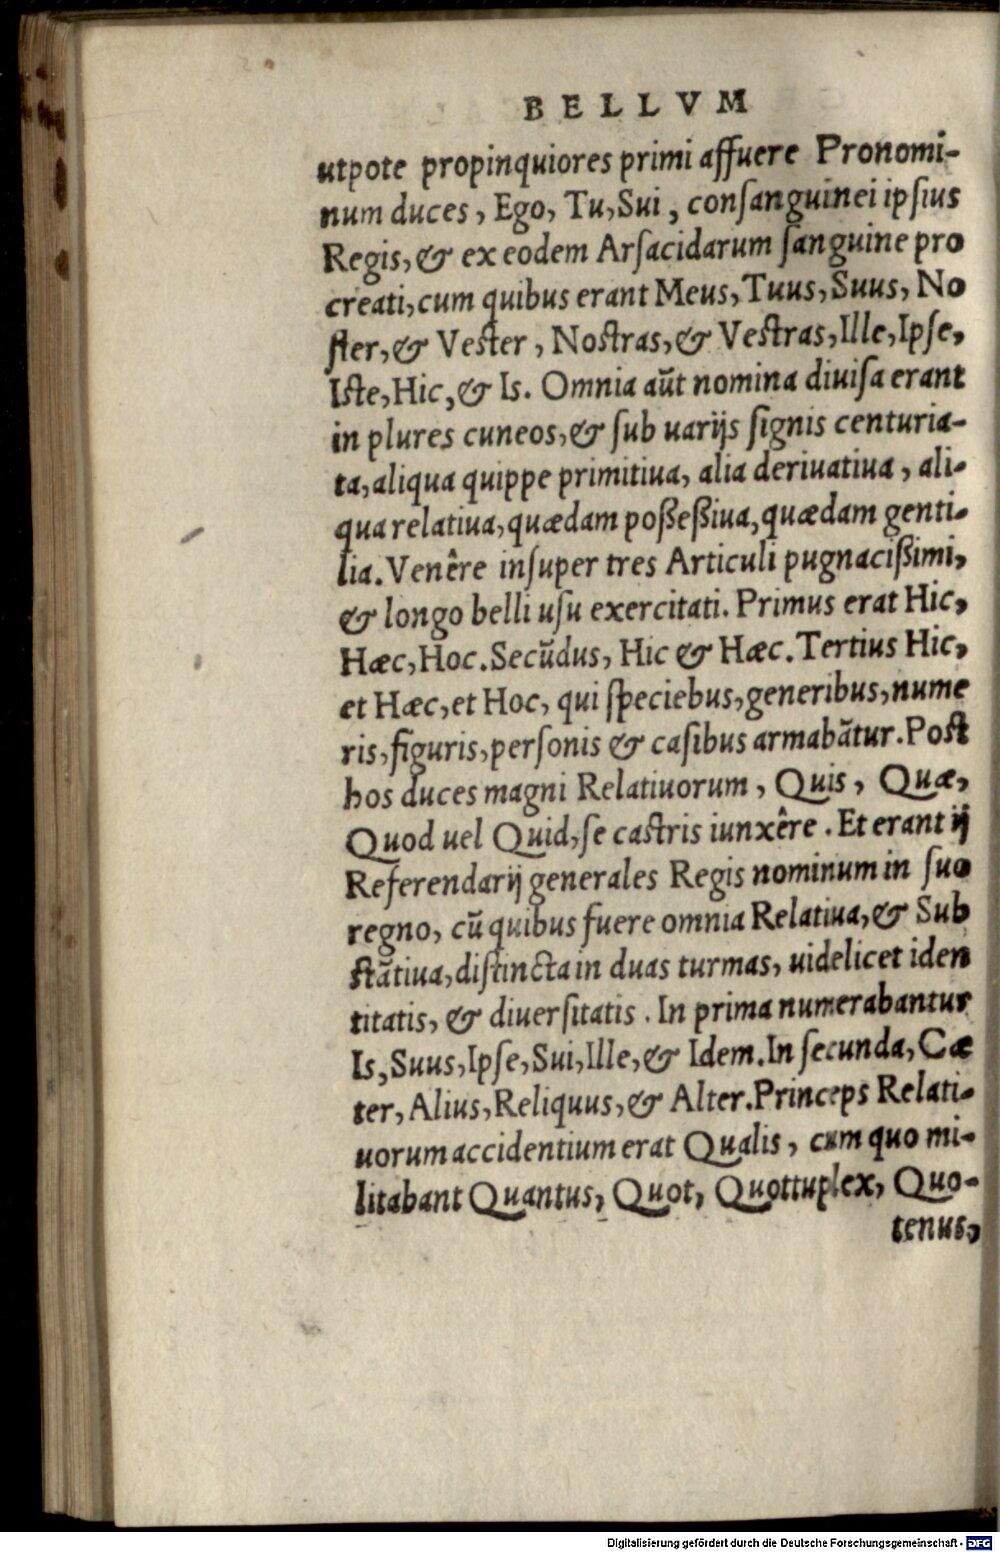 BELLVM
utpote propinquiores primi affuere Pronomi-
num duces, Ego, Tu, Sui, conſanguinei ipſius
Regis, & ex eodem Arſacidarum ſanguine pro
creati, cum quibus erant Meus, Tuus, Suus, No
ſter, & Veſter, Noſtras, & Veſtras, Ille, Ipſe,
Iſte, Hic, & Is. Omnia aũt nomina diuiſa erant
in plures cuneos, & ſub uarijs ſignis centuria-
ta, aliqua quippe primitiua, alia deriuatiua, ali-
qua relatiua, quædam poßeßiua, quædam genti-
lia. Venêre inſuper tres Articuli pugnacißimi,
& longo belli uſu exercitati. Primus erat Hic,
Hæc, Hoc. Secũdus, Hic & Hæc. Tertius Hic,
et Hæc, et Hoc, qui ſpeciebus, generibus, nume
ris, figuris, perſonis & caſibus armabãtur. Poſt
hos duces magni Relatiuorum, Quis, Quæ,
Quod uel Quid, ſe caſtris iunxêre. Et erant ij
Referendarij generales Regis nominum in ſuo
regno, cũ quibus fuere omnia Relatiua, & Sub
ſtãtiua, diſtincta in duas turmas, uidelicet iden
titatis, & diuerſitatis. In prima numerabantur
Is, Suus, Ipſe, Sui, Ille, & Idem. In ſecunda, Cæ
ter, Alius, Reliquus, & Alter. Princeps Relati-
uorum accidentium erat Qualis, cum quo mi-
litabant Quantus, Quot, Quottuplex, Quo-
tenus,
Digitalisierung gefördert durch die Deutsche Forschungsgemeinschaft - DFG